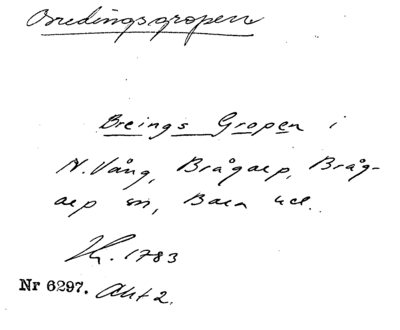 Bredingsgropen
Breings Gropen i
N. Vång, Brågarp, Bråg-
arp sn, Bara hd.
1783
Nr 6297. Akt 2.